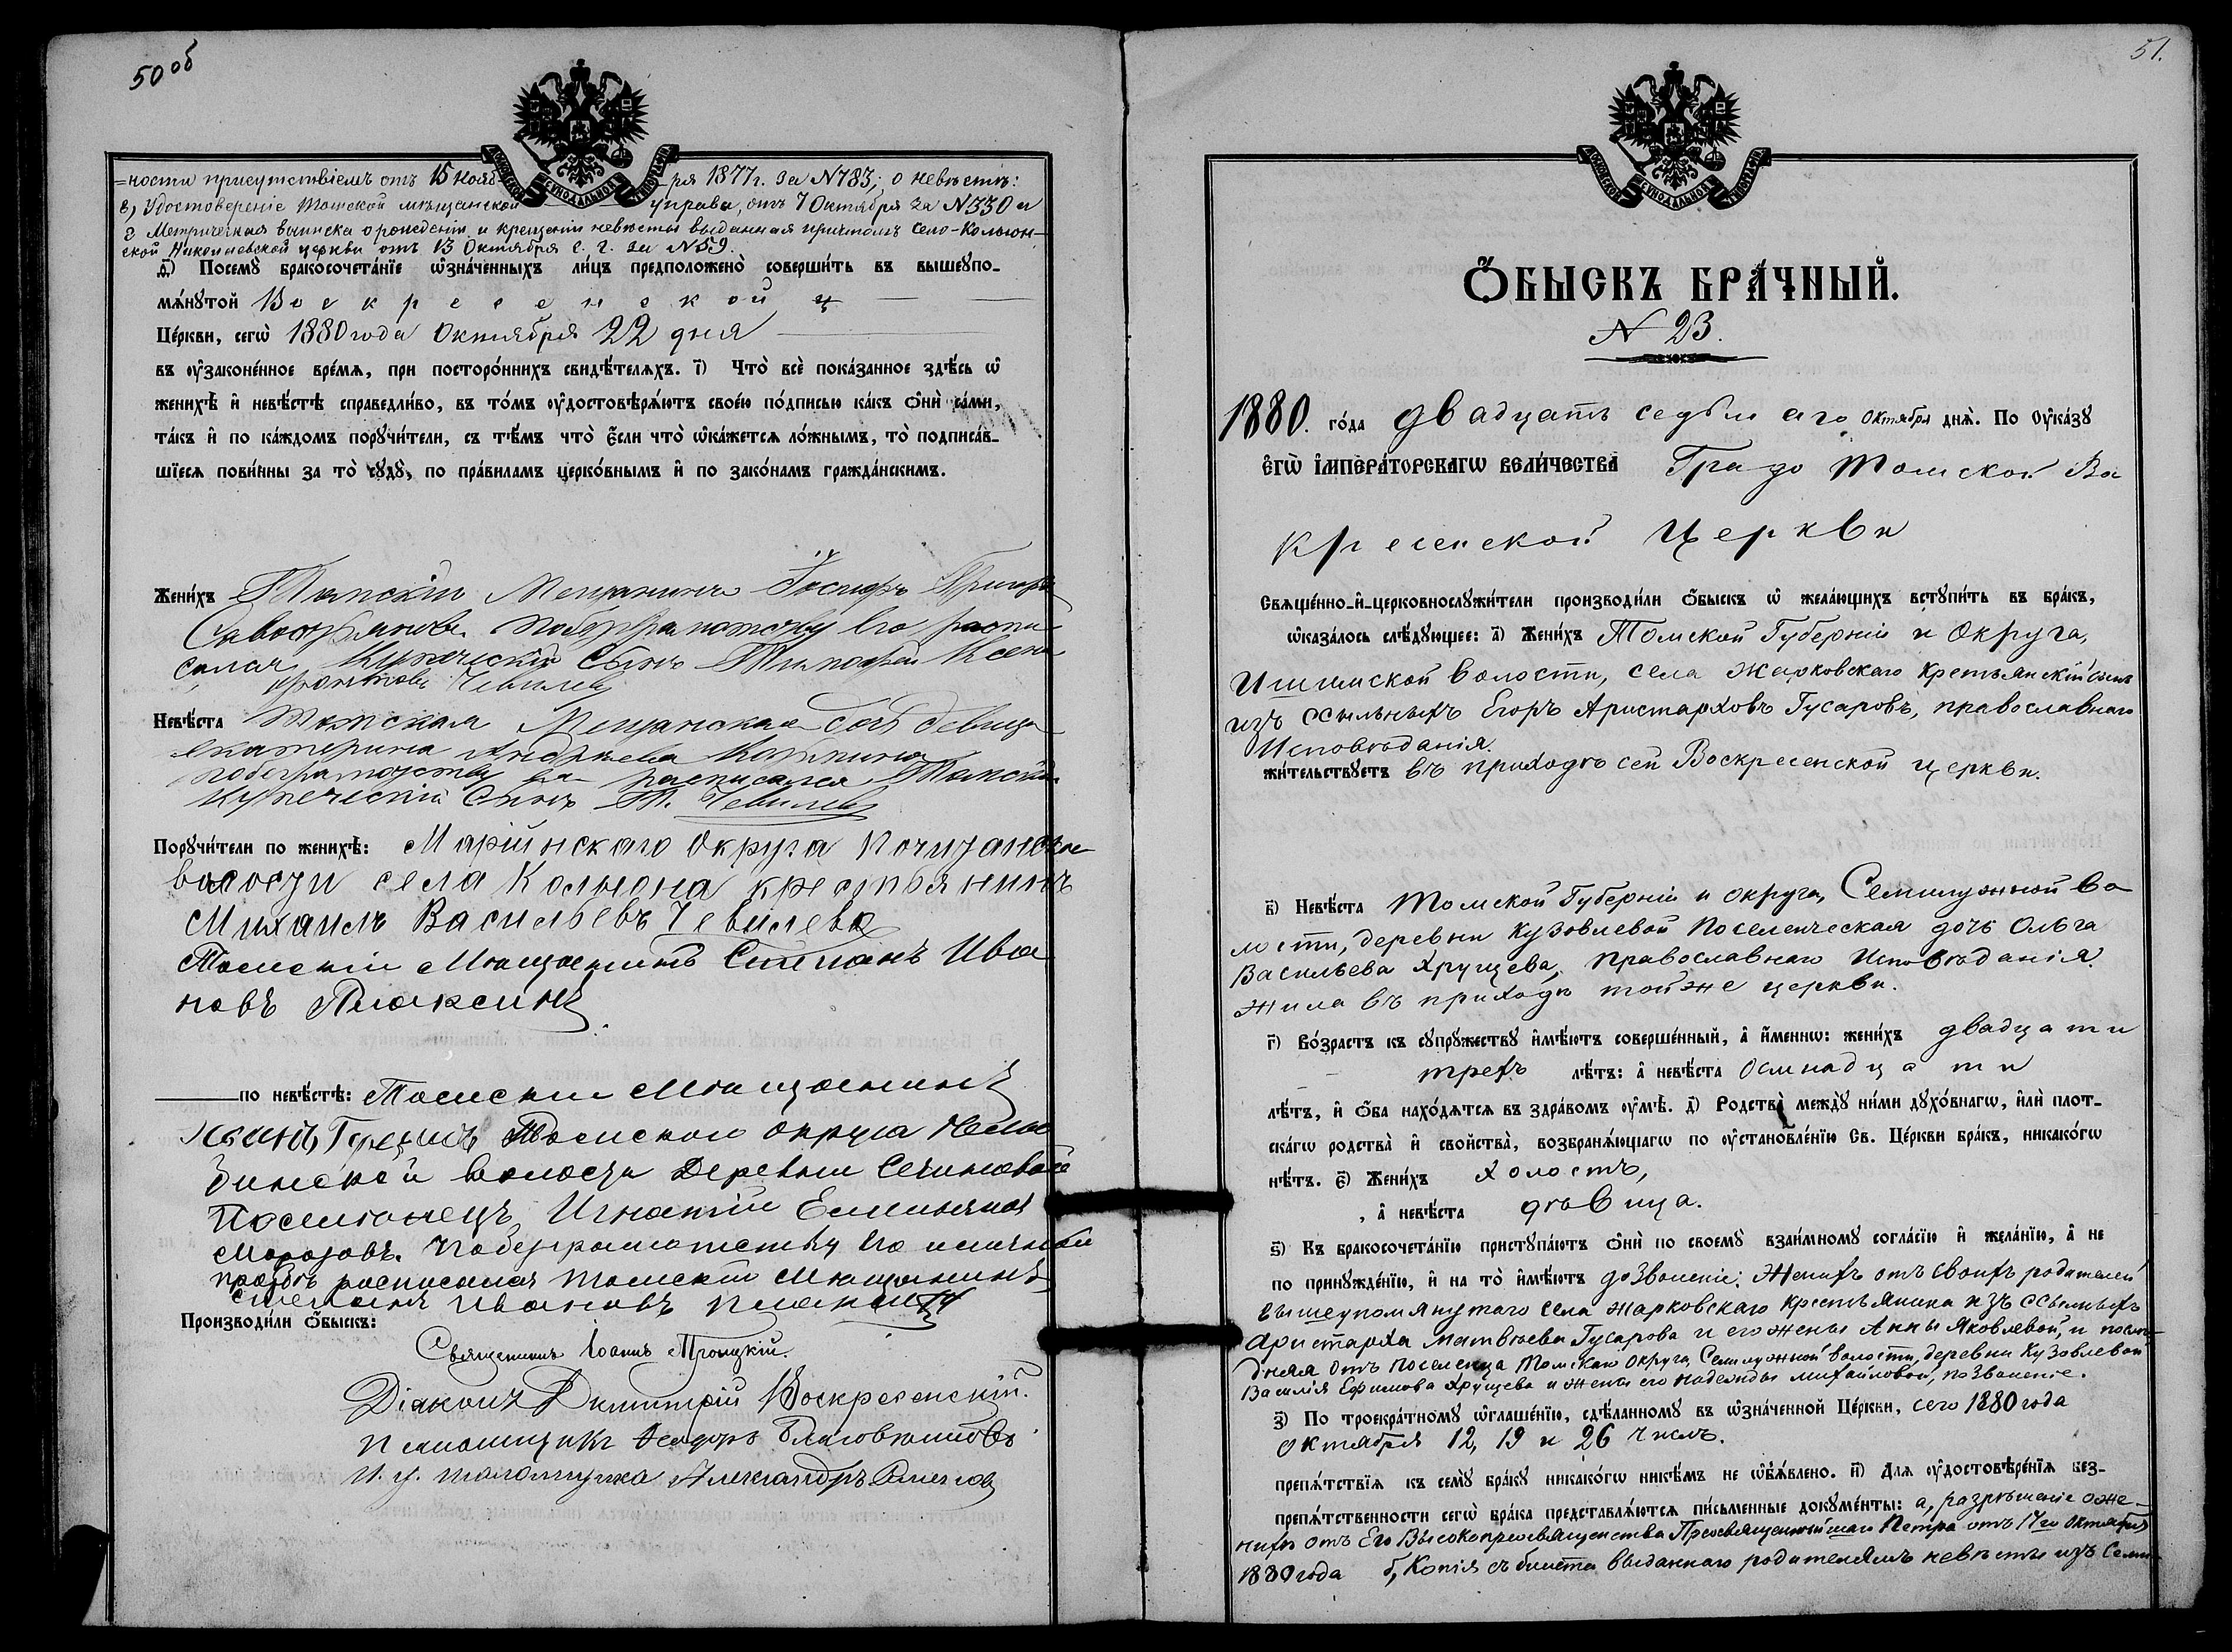 50 об
МОСКОВСКОЙ СѴНОДАЛЬНОЙ ТИПОГРАФІИ
=ности присутствіемъ отъ 15 Нояб-ря 1877 г. за № 783; о невѣстѣ:
в, Удостовѣреніе Томской мѣщанской управы, отъ 7 Октября за № 330 и
г Метрическая выписка о рожденіи и крещеніи невѣсты выданная причтомъ Село-Кольон-
ской Николаевской церкви отъ 13 Октября с. г. за № 59.
д҃) Посемꙋ̀ бракосочета́нїе ѡ҆зна́ченныхъ ли́цъ предположено̀ соверши́ть въ вышеꙋпо-
мѧ́нꙋтой Воскресенской ц
Це́ркви, сегѡ̀ 1880 года Октября 22 дня
въ оу҆законе́нное вре́мѧ, при посторо́ннихъ свидѣ́телѧхъ. і҃) Что̀ всѐ пока́занное здѣ́сь ѡ҆
женихѣ̀ и҆ невѣ́стѣ справедли́во, въ то́мъ оу҆достовѣрѧ́ютъ свое́ю по́дписью ка́къ ѻ҆нѝ са́ми,
та́къ и҆ по ка́ждомъ порꙋчи́тели, съ тѣ́мъ что̀ є҆́сли что̀ ѡ҆ка́жетсѧ ло́жнымъ, то̀ подписа́в-
шїесѧ пови́нны за то̀ сꙋдꙋ̀, по пра́виламъ церко́внымъ и҆ по зако́намъ гражда́нскимъ.
Жени́хъ Томскій Мещанинъ Іосифъ Григорь
Савостьяновъ. Побезграмотству Его распи
сался Купеческій Сынъ Тимофей Ксено
фонтовъ Чевилевъ
Невѣ́ста Томская Мещанская дочь девица
Екатерина Андреева
побезграмотству ея расписался Томскій
Купеческій Сынъ Т. Чевилевъ
Порꙋчи́тели по женихѣ̀: Маріинскаго Округа Почитанской
волости села Кольена крестьянинъ
Михаилъ Васильевъ Чевилевъ
Томскій Мѣщанинъ Степанъ Ива
новъ Плаксинъ
по невѣ́стѣ: Томскій Мѣщанинъ
Томскаго округа Нелю
бинской волости Деревни
Поселенецъ Игнатій Емельяновъ
Морозовъ. Побезграмотству Его и личной
прозьбѣ росписался томскій Мѣщанинъ
Степанъ Ивановъ Плаксинъ
Производи́ли ѻ҆́быскъ:
Священникъ Іоаннъ Троицкій.
Діаконъ Димитрій Воскресенскій.
Псаломщикъ Ѳеодоръ Благовѣщенскій
И. д. псаломщика Александръ
51.
МОСКОВСКОЙ СѴНОДАЛЬНОЙ ТИПОГРАФІИ
Ѻ҆́БЫСКЪ БРА́ЧНЫЙ.
№ 23.
1880. го́да двадцать седьмаго Октября днѧ̀. По оу҆ка́зꙋ
Є҆ГѠ̀ І҆МПЕРА́ТОРСКАГѠ ВЕЛИ́ЧЕСТВА Градо Томской Во
кресенской Церкви
Свѧще́нно-и҆-церковнослꙋжи́тели производи́ли ѻ҆́быскъ ѡ҆ жела́ющихъ встꙋпи́ть въ бра́къ,
ѡ҆каза́лось слѣ́дꙋющее: а҃) Жени́хъ Томской Губерніи и Округа,
Ишимской волости, села Жарковскаго Крестьянскій сынъ
изъ ссыльныхъ Егоръ Аристарховъ Гусаровъ, православнаго
Исповѣданія.
жи́тельствꙋетъ въ приходѣ сей Воскресенской церкви.
в҃) Невѣ́ста Томской Губерніи и округа, Семилужной во
лости, деревни Кузовлевой Поселенческая дочь Ольга
Васильева Хрущева, Православнаго Исповѣданія.
жила въ приходѣ той же церкви.
г҃) Во́зрастъ къ сꙋпрꙋ́жествꙋ и҆мѣ́ютъ соверше́нный, а҆ и҆́меннѡ: жени́хъ двадцати
трехъ лѣ́тъ: а҆ невѣ́ста осмнадцати
лѣ́тъ, и҆ ѻ҆́ба нахо́дѧтсѧ въ здра́вомъ оу҆мѣ̀. д҃) Родства̀ междꙋ̀ ни́ми дꙋхо́внагѡ, и҆лѝ плот-
ска́гѡ родства̀ и҆ свойства̀, возбранѧ́ющагѡ по оу҆становле́нїю Св. Це́ркви бра́къ, никако́гѡ
нѣ́тъ. є҃) Жени́хъ холостъ,
, а҆ невѣ́ста дѣвица.
ѕ҃) Къ бракосочета́нїю пристꙋпа́ютъ ѻ҆нѝ по своемꙋ̀ взаи́мномꙋ согла́сїю и҆ жела́нїю, а҆ не
по принꙋжде́нїю, и҆ на то̀ и҆мѣ́ютъ дозволеніе: Женихъ отъ своихъ родителей
вышеупомянутаго села Жарковскаго Крестьянина изъ ссыльныхъ
Аристарха Матвѣева Гусарова и его жены Анны Яковлевой, и послѣ-
дняя отъ поселенца Томскаго Округа, Семилужной волости, деревни Кузовлевой
Василія Ефимова Хрущева и жены его Надежды Михайловой, позволеніе.
з҃) По троекра́тномꙋ ѡ҆глаше́нїю, сдѣ́ланномꙋ въ ѡ҆зна́ченной Це́ркви, сего 1880 года
октября 12, 19 и 26 числъ.
препѧ́тствїѧ къ семꙋ̀ бра́кꙋ никако́гѡ никѣ́мъ не ѡ҆б̾ѧ́влено. и҃) Для оу҆достовѣре́нїѧ без-
препѧ́тственности сегѡ̀ бра́ка представлѧ́ютсѧ пи́сьменные докꙋме́нты: а, разрѣшеніе о же-
нихѣ отъ Его Высокопреосвященства Преосвященнѣйшаго Петра отъ 17го Октября
1880 года б, Копія съ билета выданнаго родителямъ невѣсты изъ Семи-